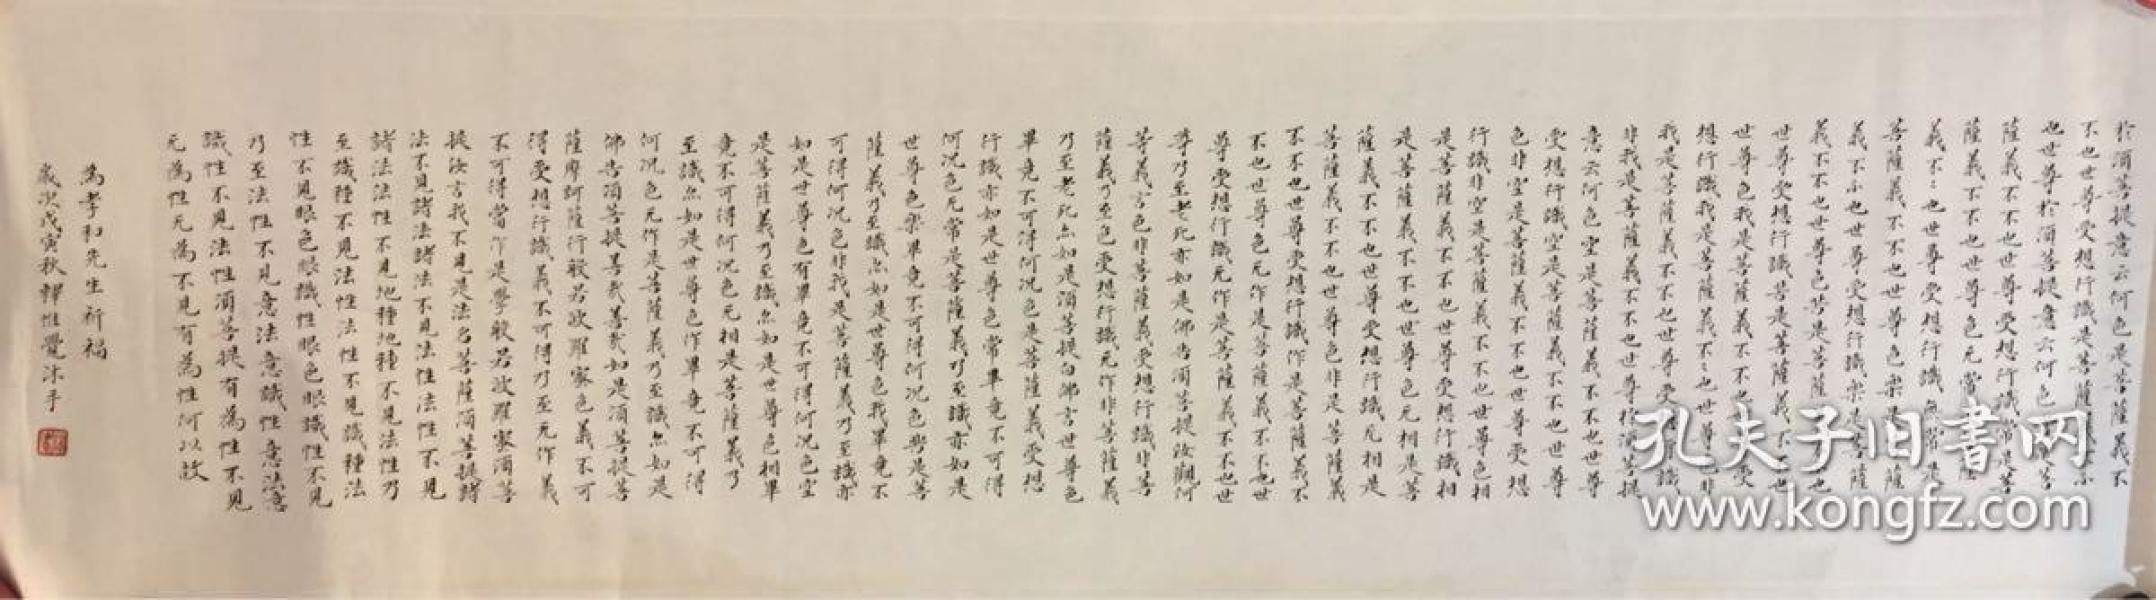 於須菩提意云何色是菩薩義不
不也世尊受想行識是菩薩義不不
也世尊於須菩提意云何色
薩義不不也世尊受想行識常是菩
薩義不不也世尊色无常
義不〻也世尊受想行識無常是
菩薩義不不也世尊色樂是
義不不也世尊受想行識樂是菩薩
義不不也世尊色苦是菩薩
世尊受想行識苦是菩薩義不不也
世尊色我是菩薩義不不也
想行識我是菩薩義不〻也世尊色非
我是菩薩義不不也世尊受想行識
非我是菩薩義不不也世尊於須菩提
意云何色空是菩薩義不不也世尊
受想行識空是菩薩義不不也世尊
色非空是菩薩義不不也世尊受想
行識非空是菩薩義不不也世尊色相
是菩薩義不不也世尊受想行識相
是菩薩義不不也世尊色无相是菩
薩義不不也世尊受想行識无相是
菩薩義不不也世尊色非是菩薩義
不不也世尊受想行識作是菩薩義不
不也世尊色无作是菩薩義不不也世
尊受想行識无作是菩薩義不不也世
尊乃至老死亦如是佛告須菩提汝觀何
等義言色非菩薩義受想行識非菩
薩義乃至色受想行識无作非菩薩義
乃至老死亦如是須菩提白佛言世尊色
畢竟不可得何况色是菩薩義受想
行識亦如是世尊色常畢竟不可得
何况色无常是菩薩義乃至識亦如是
世尊色樂畢竟不可得何况色與是菩
薩義乃至識亦如是世尊色我畢竟不
可得何况色非我是菩薩義乃至識亦
如是世尊色有畢竟不可得何况色空
是菩薩義乃至識亦如是世尊色相畢
竟不可得何况色无相是菩薩義乃
至識亦如是世尊色作畢竟不可得
何况色无作是菩薩義乃至識亦如是
佛告須菩提善哉善哉如是須菩提菩
薩摩訶薩行般若波羅蜜色義不可
得受想行識義不可得乃至无作義
不可得當作是學般若波羅蜜須菩
提汝言我不見是法名菩薩須菩提諸
法不見諸法諸法不見法性法性不見
諸法法性不見地種地種不見法性乃
至識種不見法性法性不見識種法
性不見眼色眼識性眼色眼識性不見
乃至法性不見意法意識性意法意
識性不見法性須菩提有為性不見
无為性无為不見有為性何以故
為孝和先生祈福
歲次戊寅秋釋惟覺沐手
孔夫子旧书网
www.kongfz.com